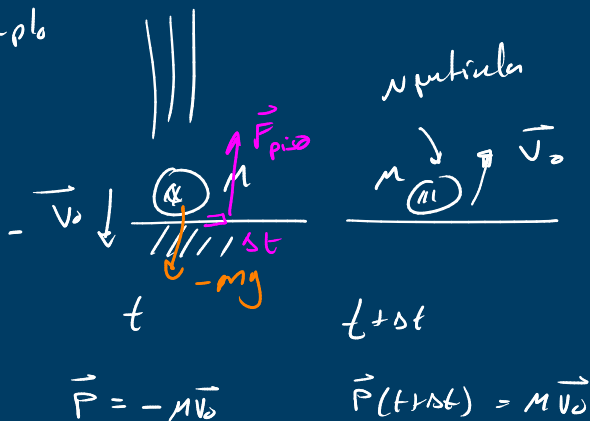 -plo
N particulas
F⃗ piso
M
V⃗₀
M
- V⃗₀
Δt
-mg
t
t+Δt
P⃗ = -MV⃗₀
P⃗(t+Δt) = MV⃗₀